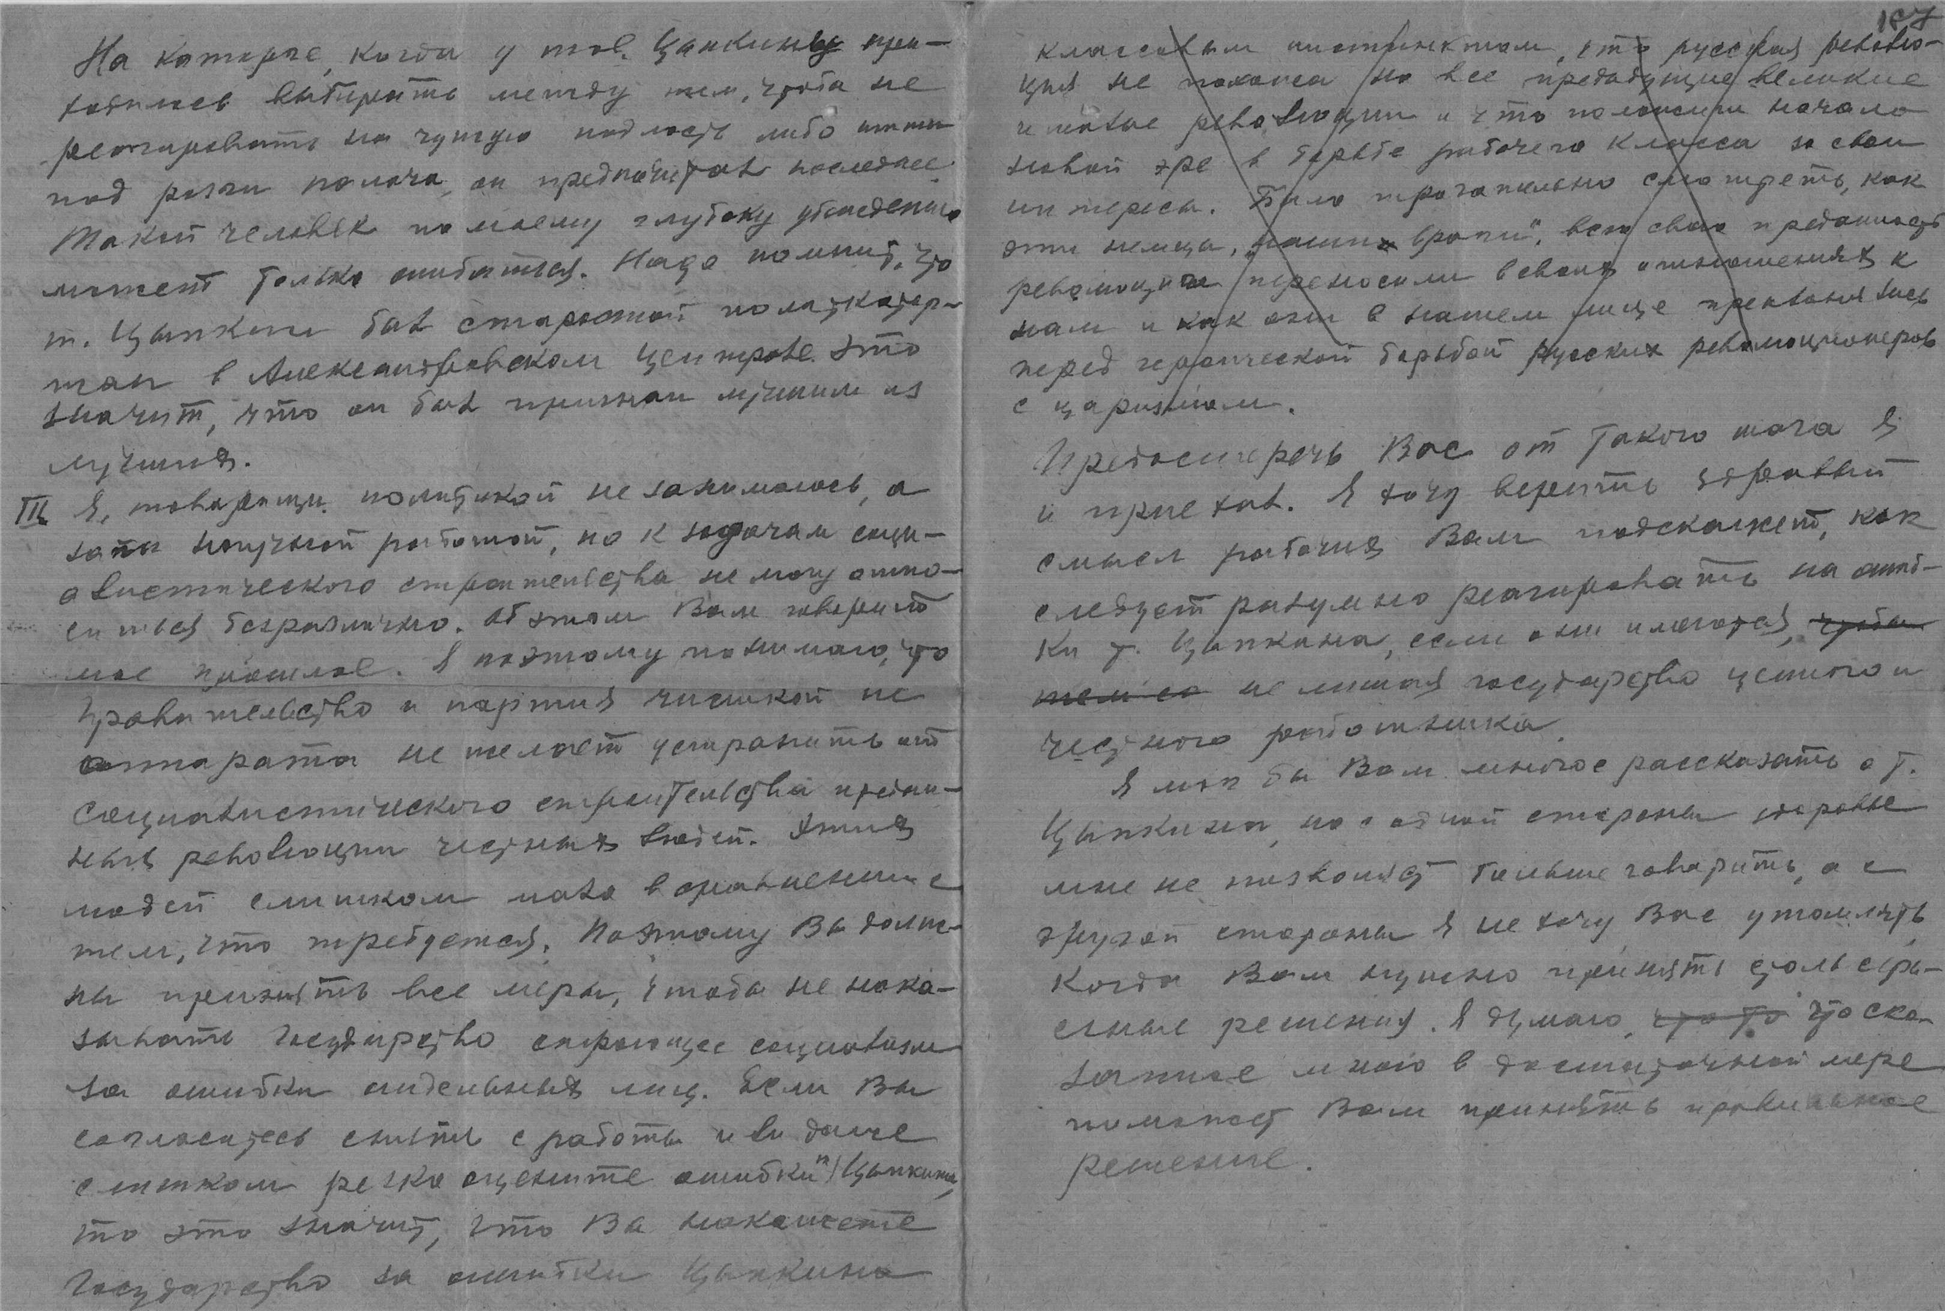 На каторге, когда у тов. Цыпкину при-
ходилось выбирать между тем, чтобы не
реагировать на чужую подлость либо итти
под розги палача, он предпочитал последнее.
Такой человек по моему глубоку убеждению
может только ошибаться. Надо помнит, что
т. Цыпкин был старостой политкатор-
жан в Александровском Централе. Это
значит, что он был признан лучшим из
лучших.
III Я, товарищи, политикой не занимаюсь, а
занят научной работой, но к задачам соци-
алистического строительства не могу отно-
ситься безразлично. Об этом Вам говорит
мое прошлое. Я поэтому понимаю, что
Правительство и партия чисткой не
аппарата не желает устранить от
социалистического строительства предан-
ных революции честных людей. Этих
людей слишком мало в сравнении с
тем, что требуется. Поэтому Вы долж-
ны принять все меры, чтобы не нака-
зывать государство строющее социализм
за ошибки отдельных лиц. Если Вы
согласитесь снять с работы или даже
слишком резко оцените ошибки Цыпкина,
то это значит, что Вы накажете
государство за ошибки Цыпкина
187
классовым инстинктом, что русская револю-
ция не похожа на все предыдущие великие
и малые революции и что положили начало
новой эре в борьбе рабочего класса за свои
интересы. Было трогательно смотреть, как
эти немцы, "наши враги", всю свою преданность
революции переносили в своих отношениях к
нам и как они в нашем лице преклонялись
перед героической борьбой русских революционеров
с царизмом.
Предостеречь Вас от такого шага я
и приехал. Я хочу верить здравый
смысл рабочих Вам подскажет, как
следует разумно реагировать на ошиб-
ки т. Цыпкина, если они имеются, чтобы
не лишая государство ценного и
честного работника.
Я мог бы Вам многое рассказать о т.
Цыпкине, но с одной стороны здоровье
мне не позволяет больше говорить, а с
другой стороны я не хочу Вас утомлять,
когда Вам нужно принять столь серь-
езные решения. Я думаю, что то что ска-
занное мною в достаточной мере
поможет Вам принять правильное
решение.